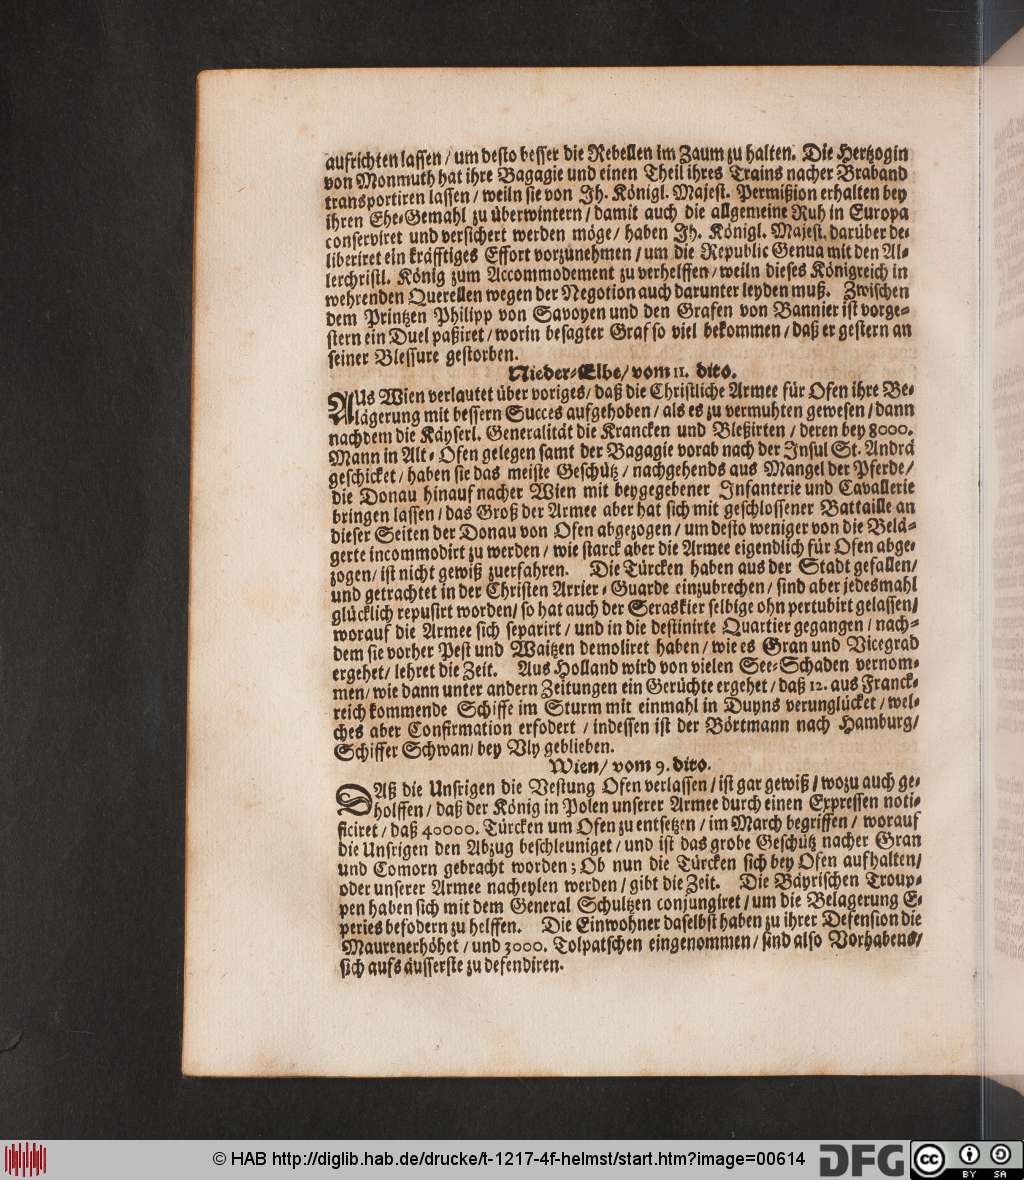 aufrichten lassen / um desto besser die Rebellen im Zaum zu halten. Die Hertzogin
von Monmuth hat ihre Bagagie und einen Theil ihres Trains nacher Braband
transportiren lassen / weiln sie von Jh. Königl. Majest. Permißion erhalten bey
ihren Ehe-Gemahl zu überwintern / damit auch die allgemeine Ruh in Europa
conserviret und versichert werden möge / haben Jh. Königl. Majest. darüber de-
liberiret ein kräfftiges Effort vorzunehmen / um die Republic Genua mit den Al-
lerchristl. König zum Accommodement zu verhelffen / weiln dieses Königreich in
wehrenden Querellen wegen der Negotion auch darunter leyden muß. Zwischen
dem Printzen Philipp von Savoyen und den Grafen von Bannier ist vorge-
stern ein Duel paßiret / worin besagter Graf so viel bekommen / daß er gestern an
seiner Blessure gestorben.
Nieder-Elbe / vom 11. dito.
AUs Wien verlautet über voriges / daß die Christliche Armee für Ofen ihre Be-
lägerung mit bessern Succes aufgehoben / als es zu vermuhten gewesen / dann
nachdem die Käyserl. Generalität die Krancken und Bleßirten / deren bey 8000.
Mann in Alt-Ofen gelegen samt der Bagagie vorab nach der Insul St. Andrä
geschicket / haben sie das meiste Geschütz / nachgehends aus Mangel der Pferde /
die Donau hinauf nacher Wien mit beygegebener Infanterie und Cavallerie
bringen lassen / das Groß der Armee aber hat sich mit geschlossener Battaille an
dieser Seiten der Donau von Ofen abgezogen / um desto weniger von die Belä-
gerte incommodirt zu werden / wie starck aber die Armee eigendlich für Ofen abge-
zogen / ist nicht gewiß zuerfahren. Die Türcken haben aus der Stadt gefallen /
und getrachtet in der Christen Arrier-Guarde einzubrechen / sind aber jedesmahl
glücklich repusirt worden / so hat auch der Seraskier selbige ohn pertubirt gelassen /
worauf die Armee sich separirt / und in die destinirte Quartier gegangen / nach-
dem sie vorher Pest und Waitzen demoliret haben / wie es Gran und Vicegrad
ergehet / lehret die Zeit. Aus Holland wird von vielen See-Schaden vernom-
men / wie dann unter andern Zeitungen ein Gerüchte ergehet / daß 12. aus Franck-
reich kommende Schiffe im Sturm mit einmahl in Duyns verunglücket / wel-
ches aber Confirmation erfodert / indessen ist der Börtmann nach Hamburg /
Schiffer Schwan / bey Vly geblieben.
Wien / vom 9. dito.
DAß die Unsrigen die Vestung Ofen verlassen / ist gar gewiß / wozu auch ge-
holffen / daß der König in Polen unserer Armee durch einen Expressen noti-
ficiret / daß 40000. Türcken um Ofen zu entsetzen / im March begriffen / worauf
die Unsrigen den Abzug beschleuniget / und ist das grobe Geschütz nacher Gran
und Comorn gebracht worden ; Ob nun die Türcken sich bey Ofen aufhalten /
oder unserer Armee nacheylen werden / gibt die Zeit. Die Bäyrischen Troup-
pen haben sich mit dem General Schultzen conjungiret / um die Belagerung E-
peries befodern zu helffen. Die Einwohner daselbst haben zu ihrer Defension die
Mauren erhöhet / und 3000. Tolpatschen eingenommen / sind also Vorhabens /
sich aufs äusserste zu defendiren.
© HAB http://diglib.hab.de/drucke/t-1217-4f-helmst/start.htm?image=00614
DFG
cc
BY SA